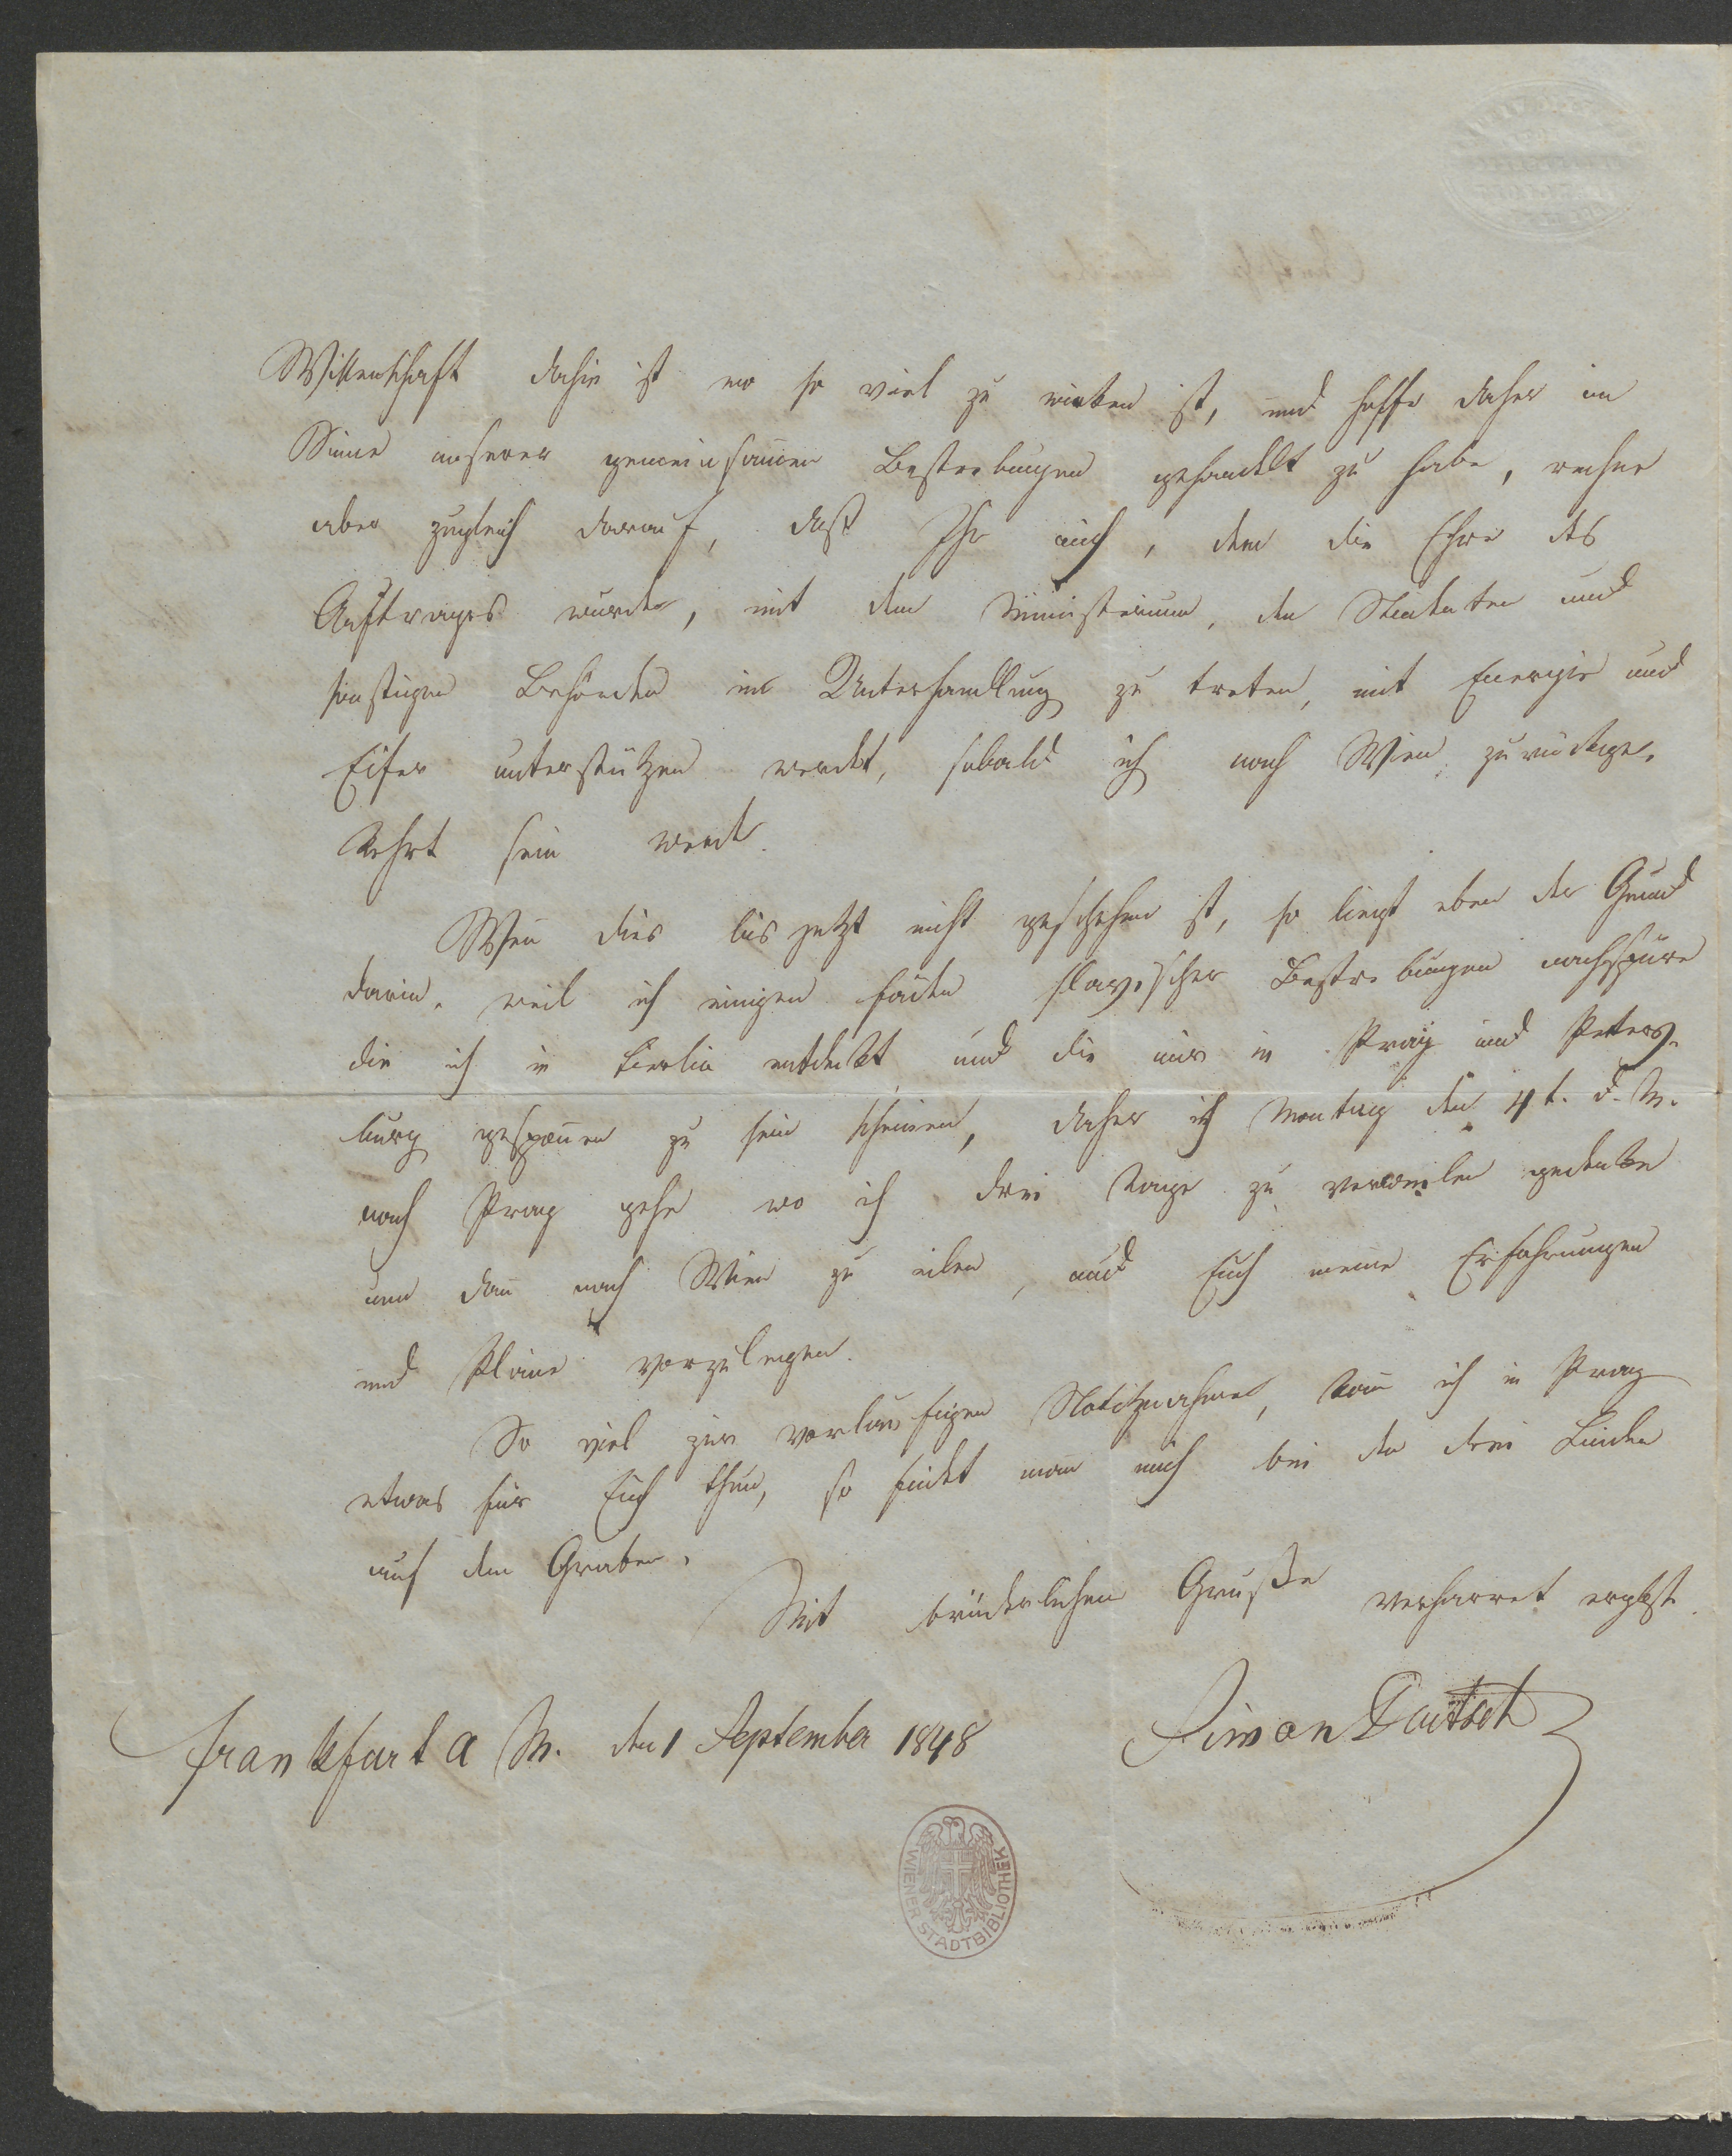 Wissenschaft dahin ist wo so viel zu wirken ist, und hoffe daher im
Sinne unserer gemeinsamen Bestrebungen gehandelt zu habe, rechne
aber zugleich darauf, daß Ihr mich, dem die Ehre des
Auftrages wurde, mit dem Ministerium, den Studenten und
sonstigen Behörden in Unterhandlung zu treten, mit Energie und
Eifer unterstützen werdet, sobald ich nach Wien zurückge-
kehrt sein werde.
Wenn dies bis jetzt nicht geschehen ist, so liegt eben der Grund
darin, weil ich einigen Fäden slavischer Bestrebungen nachspüre
die ich in Berlin entdeckt und die mir in Prag und Peters-
burg gesponnen zu sein scheinen, daher ich Montag den 4t. d. M.
nach Prag gehe wo ich drei Tage zu verweilen gedenke
um dann nach Wien zu eilen, und Euch meine Erfahrungen
und Pläne vorzulegen.
So viel zur vorläufigen Notitznahme, kann ich in Prag
etwas für Euch thun, so findet man mich bei den drei Linden
auf dem Graben.
Mit brüderlichem Gruße verharret ergbst.
Frankfurt a M. den 1 September 1848
Simon Deutsch
WIENER STADTBIBLIOTHEK